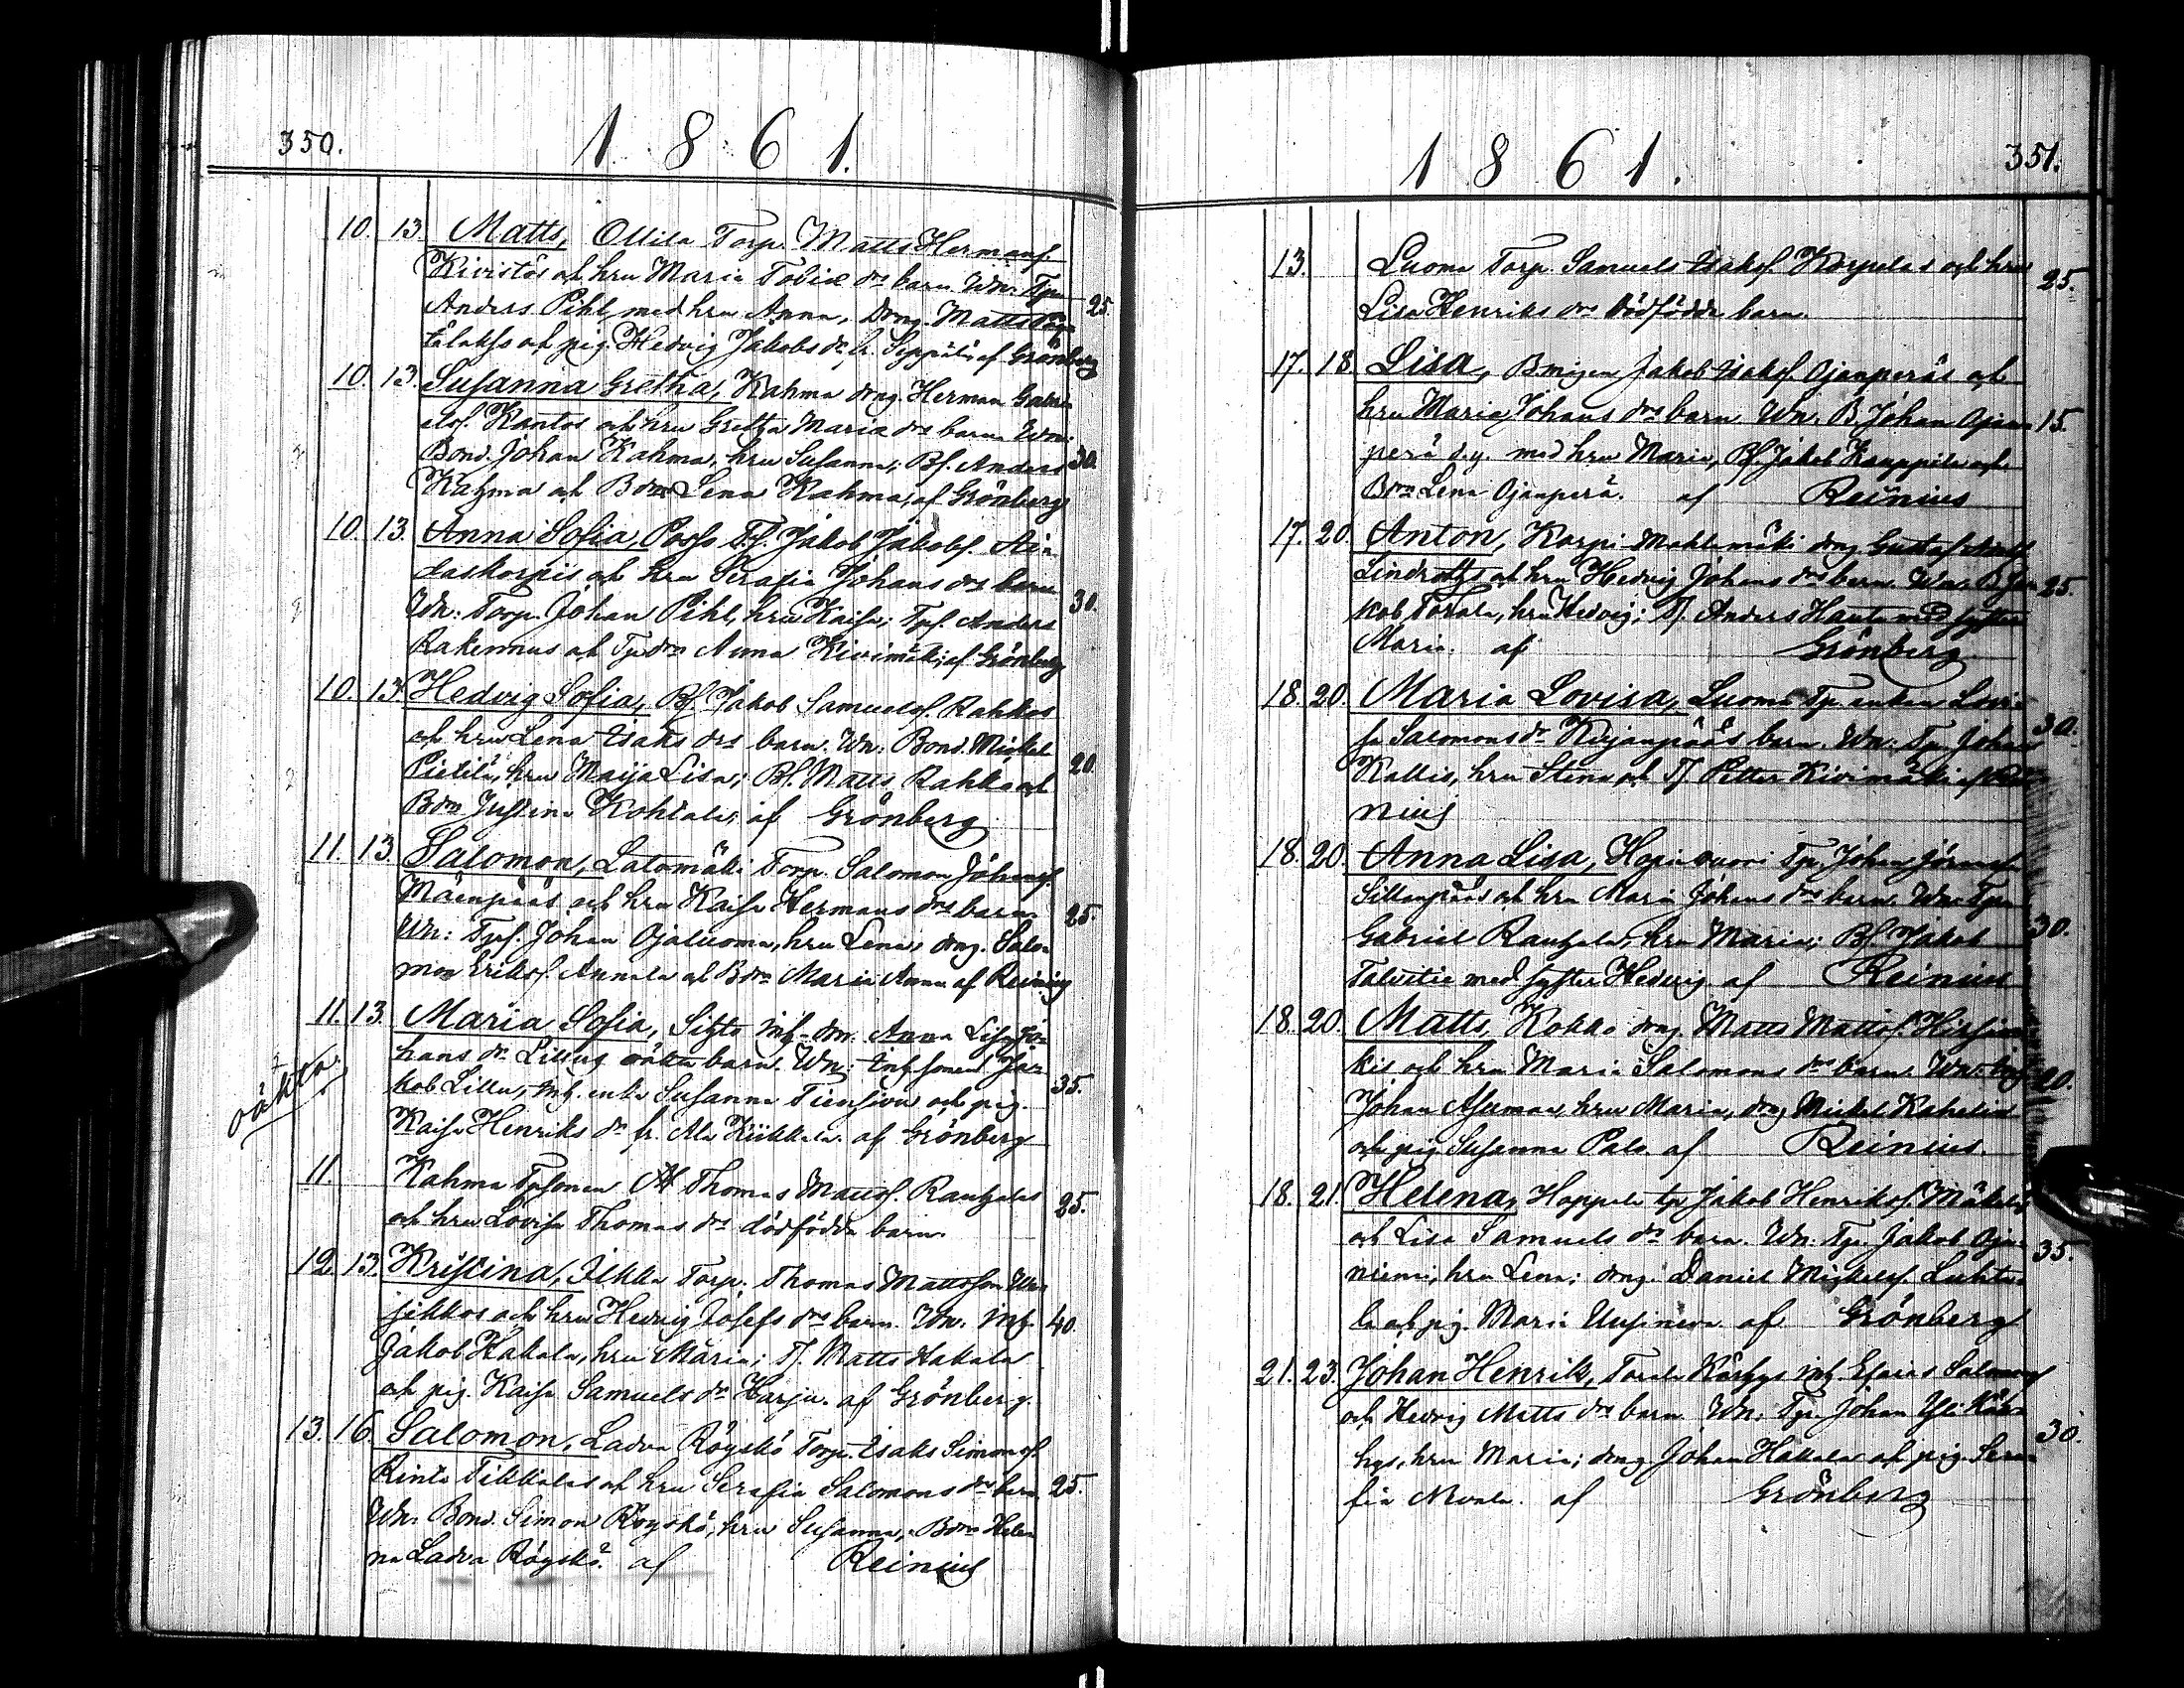 350.
1861.
10. 13. Matts, Ollila Torp. Matts Hermanss.
Kivistös och hru Maria Tobiæ drs barn. Wn: Tpn
Anders Pihl med hru Anna, Dräng Matts
och pig. Hedvig Jakobs dr fr. Seppälä af Grönberg
25.
10. 13. Susanna Gretha, Kahma dräng. Herman Gabri-
elss. Kantos och hru Gretha Maria drs barn. Wn:
Bond. Johan Kahma, hru Susanna; Bs. Anders
Kahma och Bdr Lena Kahma, af Grönberg
30.
10. 13. Anna Sofia, Ts. Jakob Jakobs.
och hru Serafia Johans drs barn
Wn: Torp. Johan Pihl, hru Kaisa; Tps. Anders
Rakennus och Tpdr Anna Kivimäki, af Grönberg
30.
10. 13. Hedvig Sofia, Bs. Jakob Samuelss. Rahkos
och hru Lena Isaks drs barn. Wn: Bond. Mickel
Pietilä, hru Maija Lisa; Bs. Matts Rahko och
Bdr Justina Kohtala, af Grönberg
20.
11. 13. Salomon, Latomäki Torp. Salomon Johans.
Mäenpääs och hru Kaisa Hermans drs barn.
Wn: Tps. Johan Ojaluoma, hru Lena, dräng. Salo-
mon Erikss. Annala och Bdr Maria Anna af Reinius
25.
oäkta
11. 13. Maria Sofia, inh. dr. Anna Lisa Jo-
hans dr Lillus oäkta barn. Wn: Inh. sonen Ja-
kob Lillu, inh. enka Susanna och pig.
Kaisa Henriks dr fr. Ala af Grönberg
35.
11. Kahma Tpsonen Thomas Mattss. Rantalas
och hru Lovisa Thomas drs dödfödda barn.
25.
12. 13. Kristina, Ilkka Torp. Thomas Mattsson
och hru Hedvig Josefs drs barn. Wn. Inh.
Jakob Hakala, hru Maria; Ts. Matts Hakala
och pig. Kaisa Samuels dr Harju. af Grönberg.
40.
13. 16. Salomon, Ladva Röyskö Torp. Isaks Simonss.
Rinta Tikkalas och hru Serafia Salomons drs barn.
Wn. Bond. Simon Röyskö, hru Susanna, Bdr Hele-
na Ladva Röyskö. af Reinius
25.
1861.
351.
13. Luoma Torp. Samuels Isakss. Korpelas och hru
Lisa Henriks drs dödfödda barn.
25.
17. 18. Lisa, Jakob Isakss. Ojanperäs och
hru Maria Johans drs barn. Wn. B. Johan Ojan-
perä d.y. med hru Maria, Bs. Jakob Kauppila och
Bdr Lena Ojanperä. af Reinius
15.
17. 20. Anton, Karpi dräng Gustaf
och hru Hedvig Johans drs barn. Wn. B. Ja-
kob Torala, hru Hedvig; Ts. Anders Hauta med syster
Maria. af Grönberg.
25.
18. 20. Maria Lovisa, Luoma Tp. enkan Lovi-
sa Salomons dr barn. Wn: Tp. Johan
Kallis, hru Stina och Ts. Petter Kivimäki af Rei-
nius
30.
18. 20. Anna Lisa, Hopiavuori Tp. Johan
Sillanpääs och hru Maria Johans drs barn. Wn: Tpn
Gabriel Rantala, hru Maria; Bs. Jakob
Talvitie med syster Hedvig. af Reinius
30.
18. 20. Matts, Kokko dräng. Matts Mattss.
och hru Maria Salomons drs barn. Wn:
Johan hru Maria, dräng Mickel
och pig Susanna Palo. af Reinius.
20.
18. 21. Helena, Hoppela tp. Jakob Henrikss. Mäkeläs
och Lisa Samuels drs barn. Wn. Tp. Jakob Oja-
niemi, hru Lena; dräng. Daniel Mickelss. Luhta-
la och pig. Maria Uusineva. af Grönberg
35.
21. 23. Johan Henrik, Torala inh. Esaias Salomons.
och Hedvig Matts drs barn. Wn: Tp. Johan Yli
hru Maria; dräng Johan Hakala och pig. Sera-
fia af Grönberg
30.